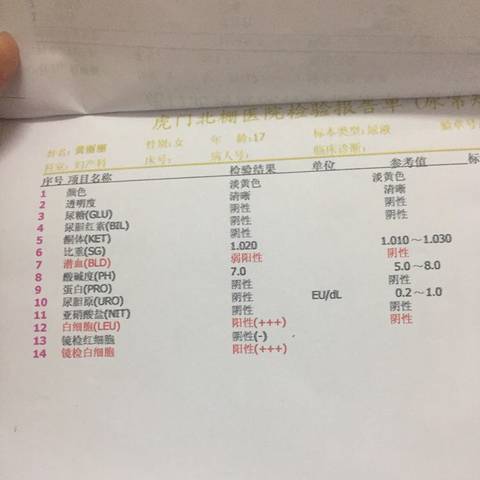 虎门北栅医院检验报告单(尿常规
姓名: 性别:女 年 龄:17 标本类型:尿液
科室:妇产科 床号: 病人号: 临床诊断:
序号 项目名称 检验结果 单位 参考值 标
1 颜色 淡黄色 淡黄色
2 透明度 清晰 清晰
3 尿糖(GLU) 阴性 阴性
4 尿胆红素(BIL) 阴性 阴性
5 酮体(KET) 阴性
6 比重(SG) 1.020 1.010~1.030
7 潜血(BLD) 弱阳性 阴性
8 酸碱度(PH) 7.0 5.0~8.0
9 蛋白(PRO) 阴性 阴性
10 尿胆原(URO) 阴性 EU/dL 0.2~1.0
11 亚硝酸盐(NIT) 阴性 阴性
12 白细胞(LEU) 阳性(+++) 阴性
13 镜检红细胞 阴性(-)
14 镜检白细胞 阳性(+++)